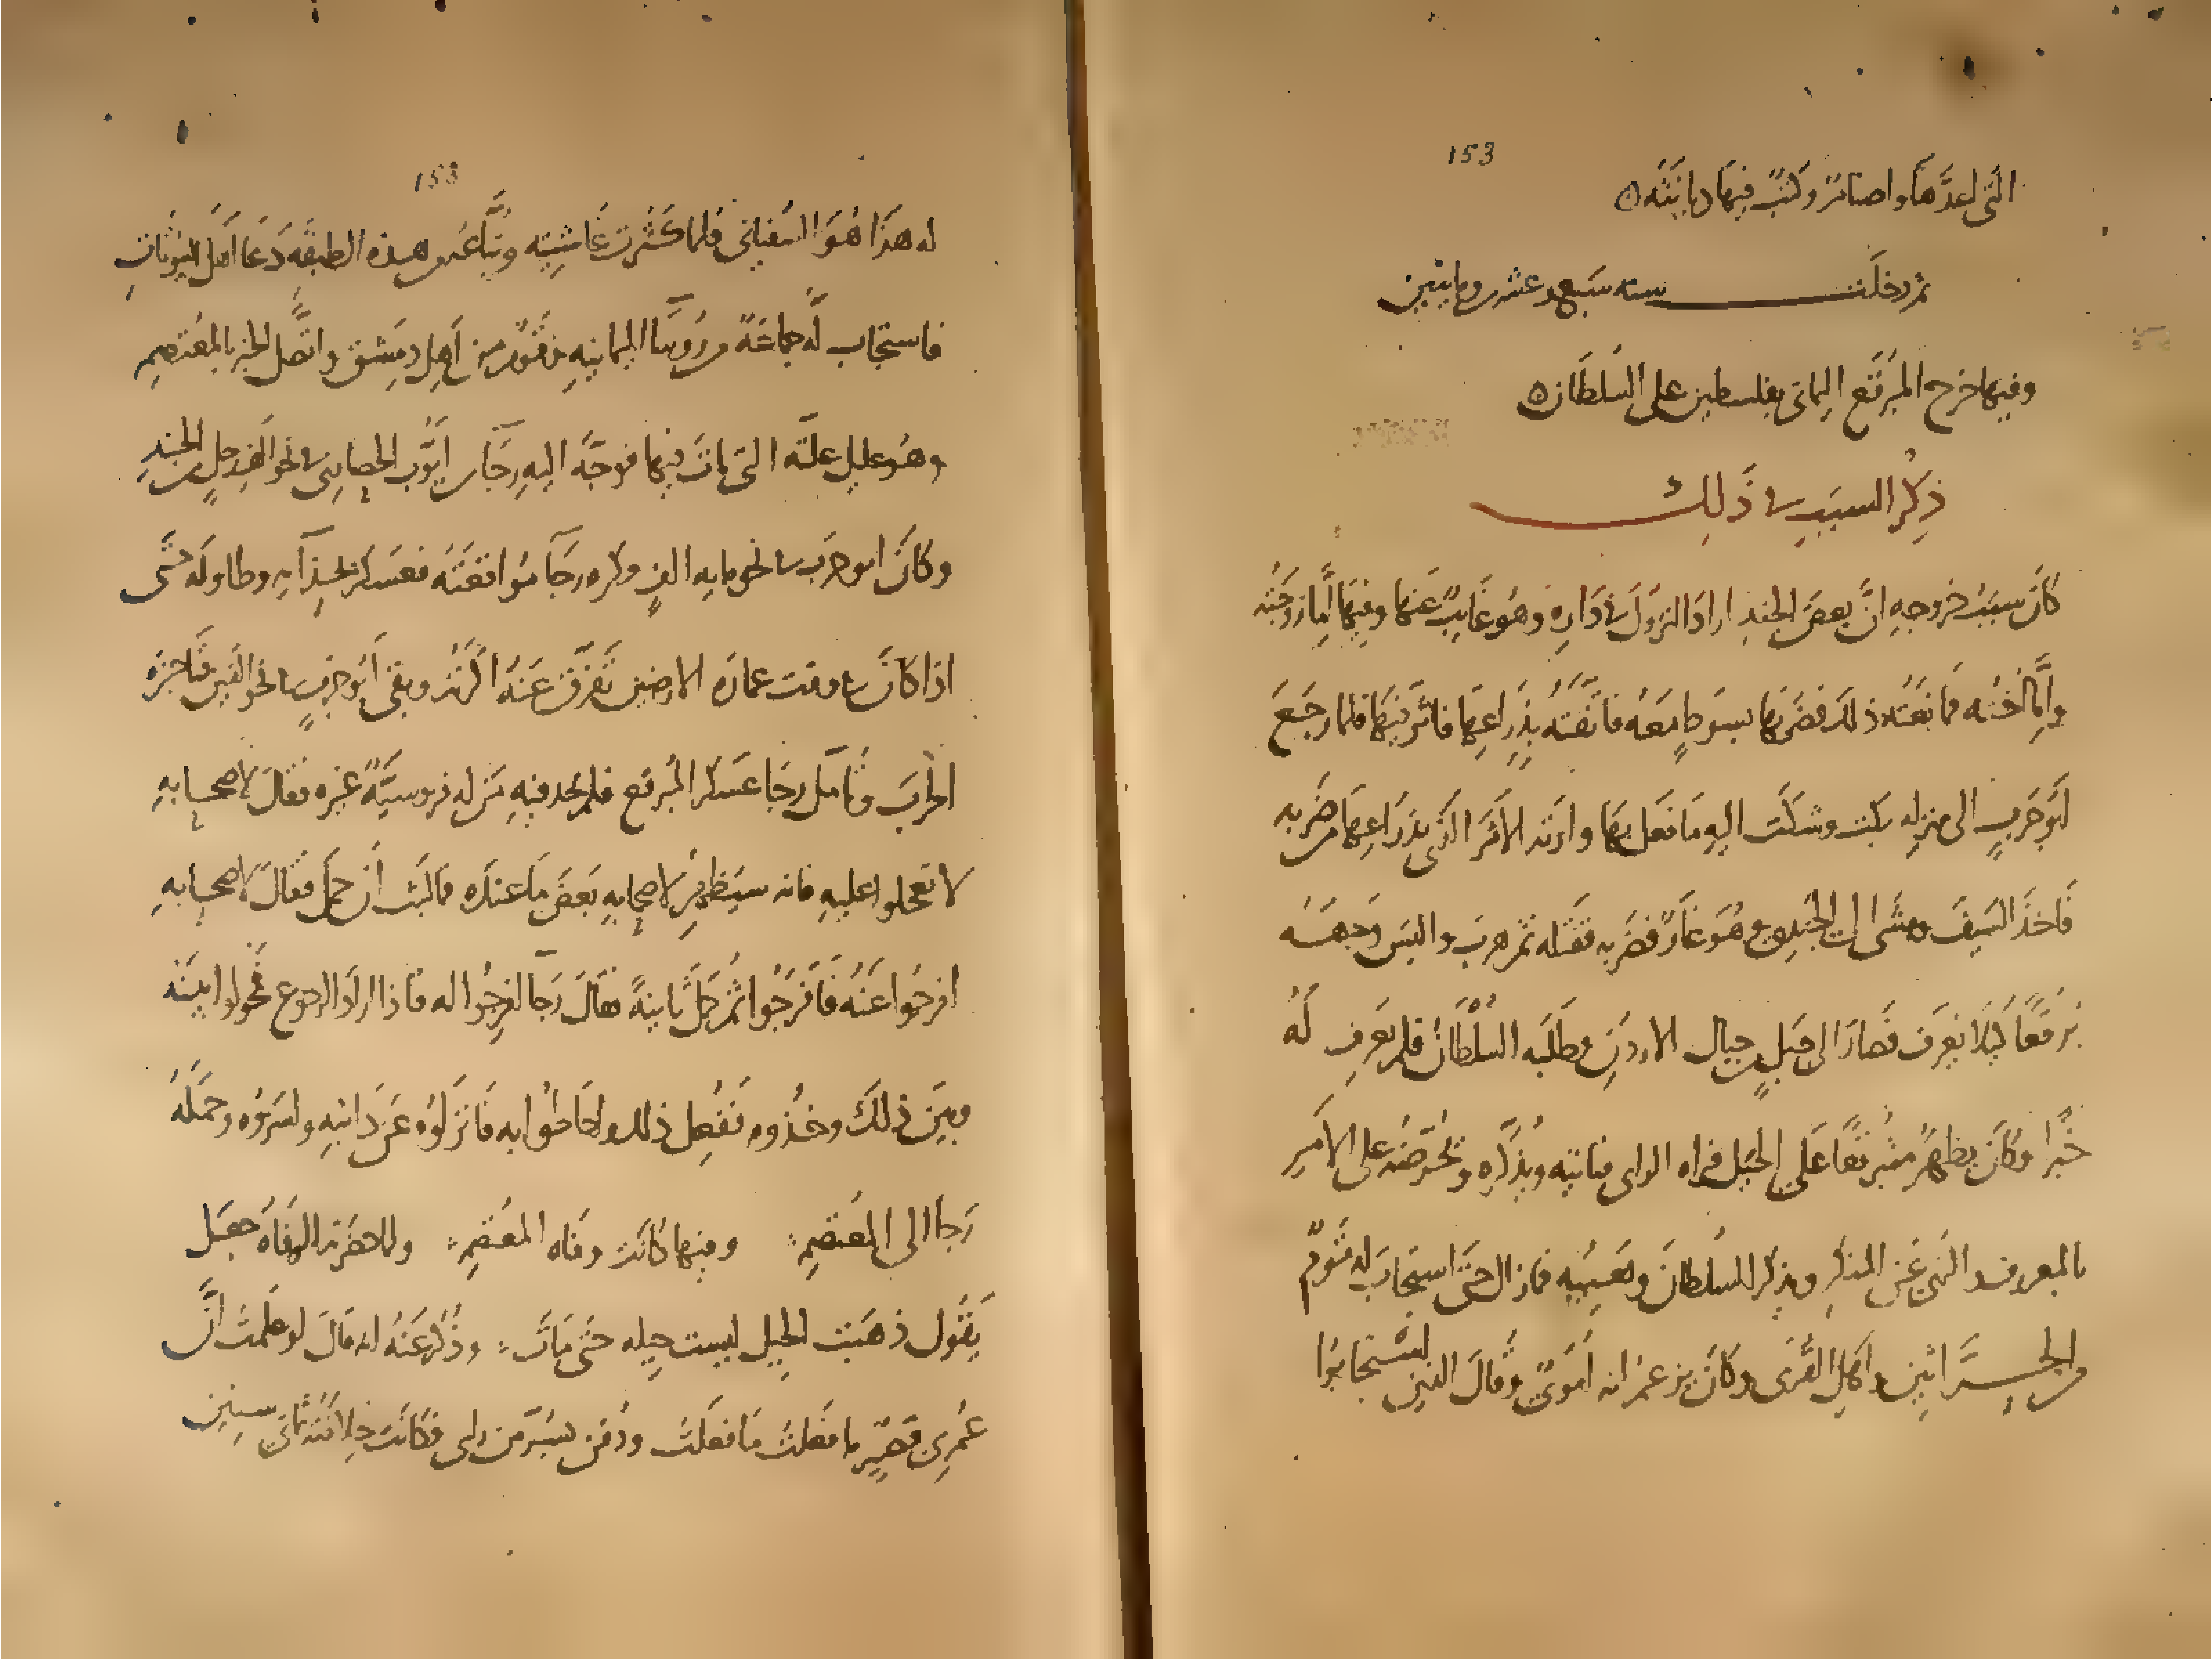 153
التى اعدها واصنام وكتب فيها ديانته ه
ثم دخلت سنه سبع وعشرين ومايتين
وفيها خرج المبرقع اليمانى بفلسطين على السلطان ه
ذكر السبب فى ذلك
كان سبب خروجه ان بعض الجند اراد النزول فى داره وهو غايب عنها وفيها اما زوجته
واما اخته فمانعته ذلك فضربها بسوط معه فاتقته بذراعها فاثر فيها فلما رجع
ابو حرب الى منزله بكت وشكت اليه ما فعل بها وارته الاثر الذى بذراعها من ضربه
فاخذ السيف ومشى الى الجندى وهو غار فضربه فقتله ثم هرب والبس وجهه
برقعا كيلا يعرف فصار الى جبل من جبال الاردن وطلبه السلطان فلم يعرف له
خبرا وكان يظهر متبرقعا على الجبل فيراه الراى فياتيه ويذكره ويحرضه على الامر
بالمعروف والنهى عن المنكر ويذكر السلطان ويعيبه فما زال حتى استجاب له قوم
من الحراثين واهل القرى وكان يزعم انه اموى وقال الذين استجابوا
153
له هذا هو السفيانى فلما كثرت غاشيته وتباعه من هذه الطبقه دعا اهل البيوتات
فاستجاب له جماعة من روسا اليمانيه وقوم من اهل دمشق واتصل الخبر بالمعتصم
وهو عليل علته التى مات فيها فوجه اليه رجا بن ايوب الحضارى فى نحو الف رجل من الجند
وكان ابو حرب فى نحو مايه الف وكره رجا مواقعته فعسكر بحذايه وطاوله حتى
اذا كان فى وقت عمارة الارضين تفرق عنه اكثرهم وبقى ابو حرب فى نحو الفين فناجزه
الحرب وتامل رجا عسكر المبرقع فلم يجد فيه من له فروسية غيره فقال لاصحابه
لا تعجلوا عليه فانه سيظهر لاصحابه بعض ما عنده فما لبث ان حمل فقال لاصحابه
افرجوا عنه فافرجوا ثم حمل ثانية فقال رجا افرجوا له فاذا اراد الرجوع فحولوا بينه
وبين ذلك وخذوه ففعل ذلك واحاطوا به فانزلوه عن دابته واسروه وحمله
رجا الى المعتصم وفيها كانت وفاه المعتصم ولما حضرته الوفاه جعل
يقول ذهبت الحيل ليست حيله حتى مات وذكر عنه انه قال لو علمت ان
عمرى قصير ما فعلت ما فعلت ودفن بسر من راى فكانت خلافته ثمانى سنين